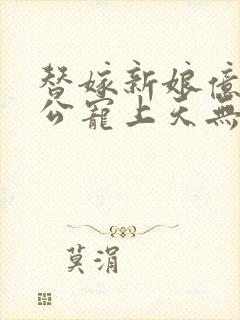 替嫁新娘億
公寵上天無
莫涓